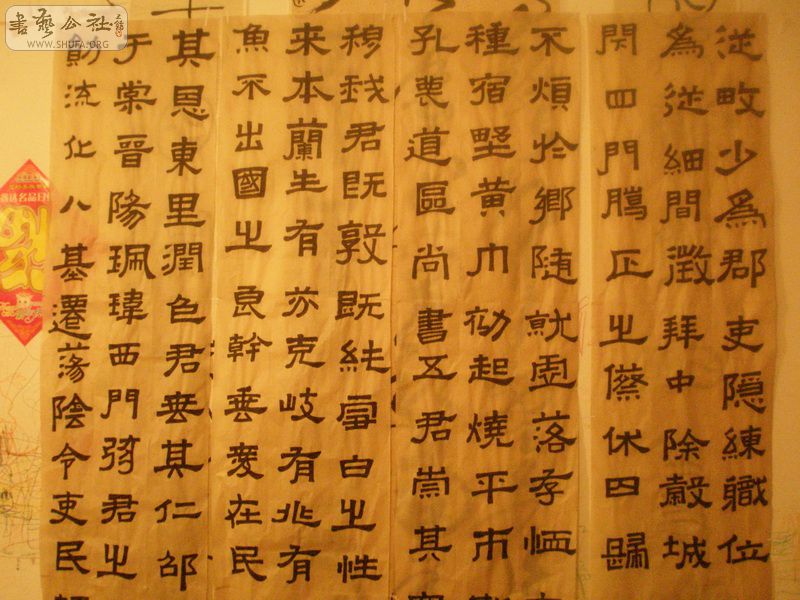 書藝公社
WWW.SHUFA.ORG
從畋少為郡吏隱練職位
為從細間徵拜中除穀城
閇四門騰正之僚休囚歸
不煩於鄉隨就虛落存恤
種宿野黃巾初起燒平市
孔喪道區尚書五君崇其
穆我君既敦既純雪白之性
来本蘭生有芬克岐有兆有
魚不出國之良幹垂愛在民
其恩東里潤色君垂其仁邵
于棠晉陽珮瑋西門帶弦君之
勛流化八基遷蕩陰令吏民